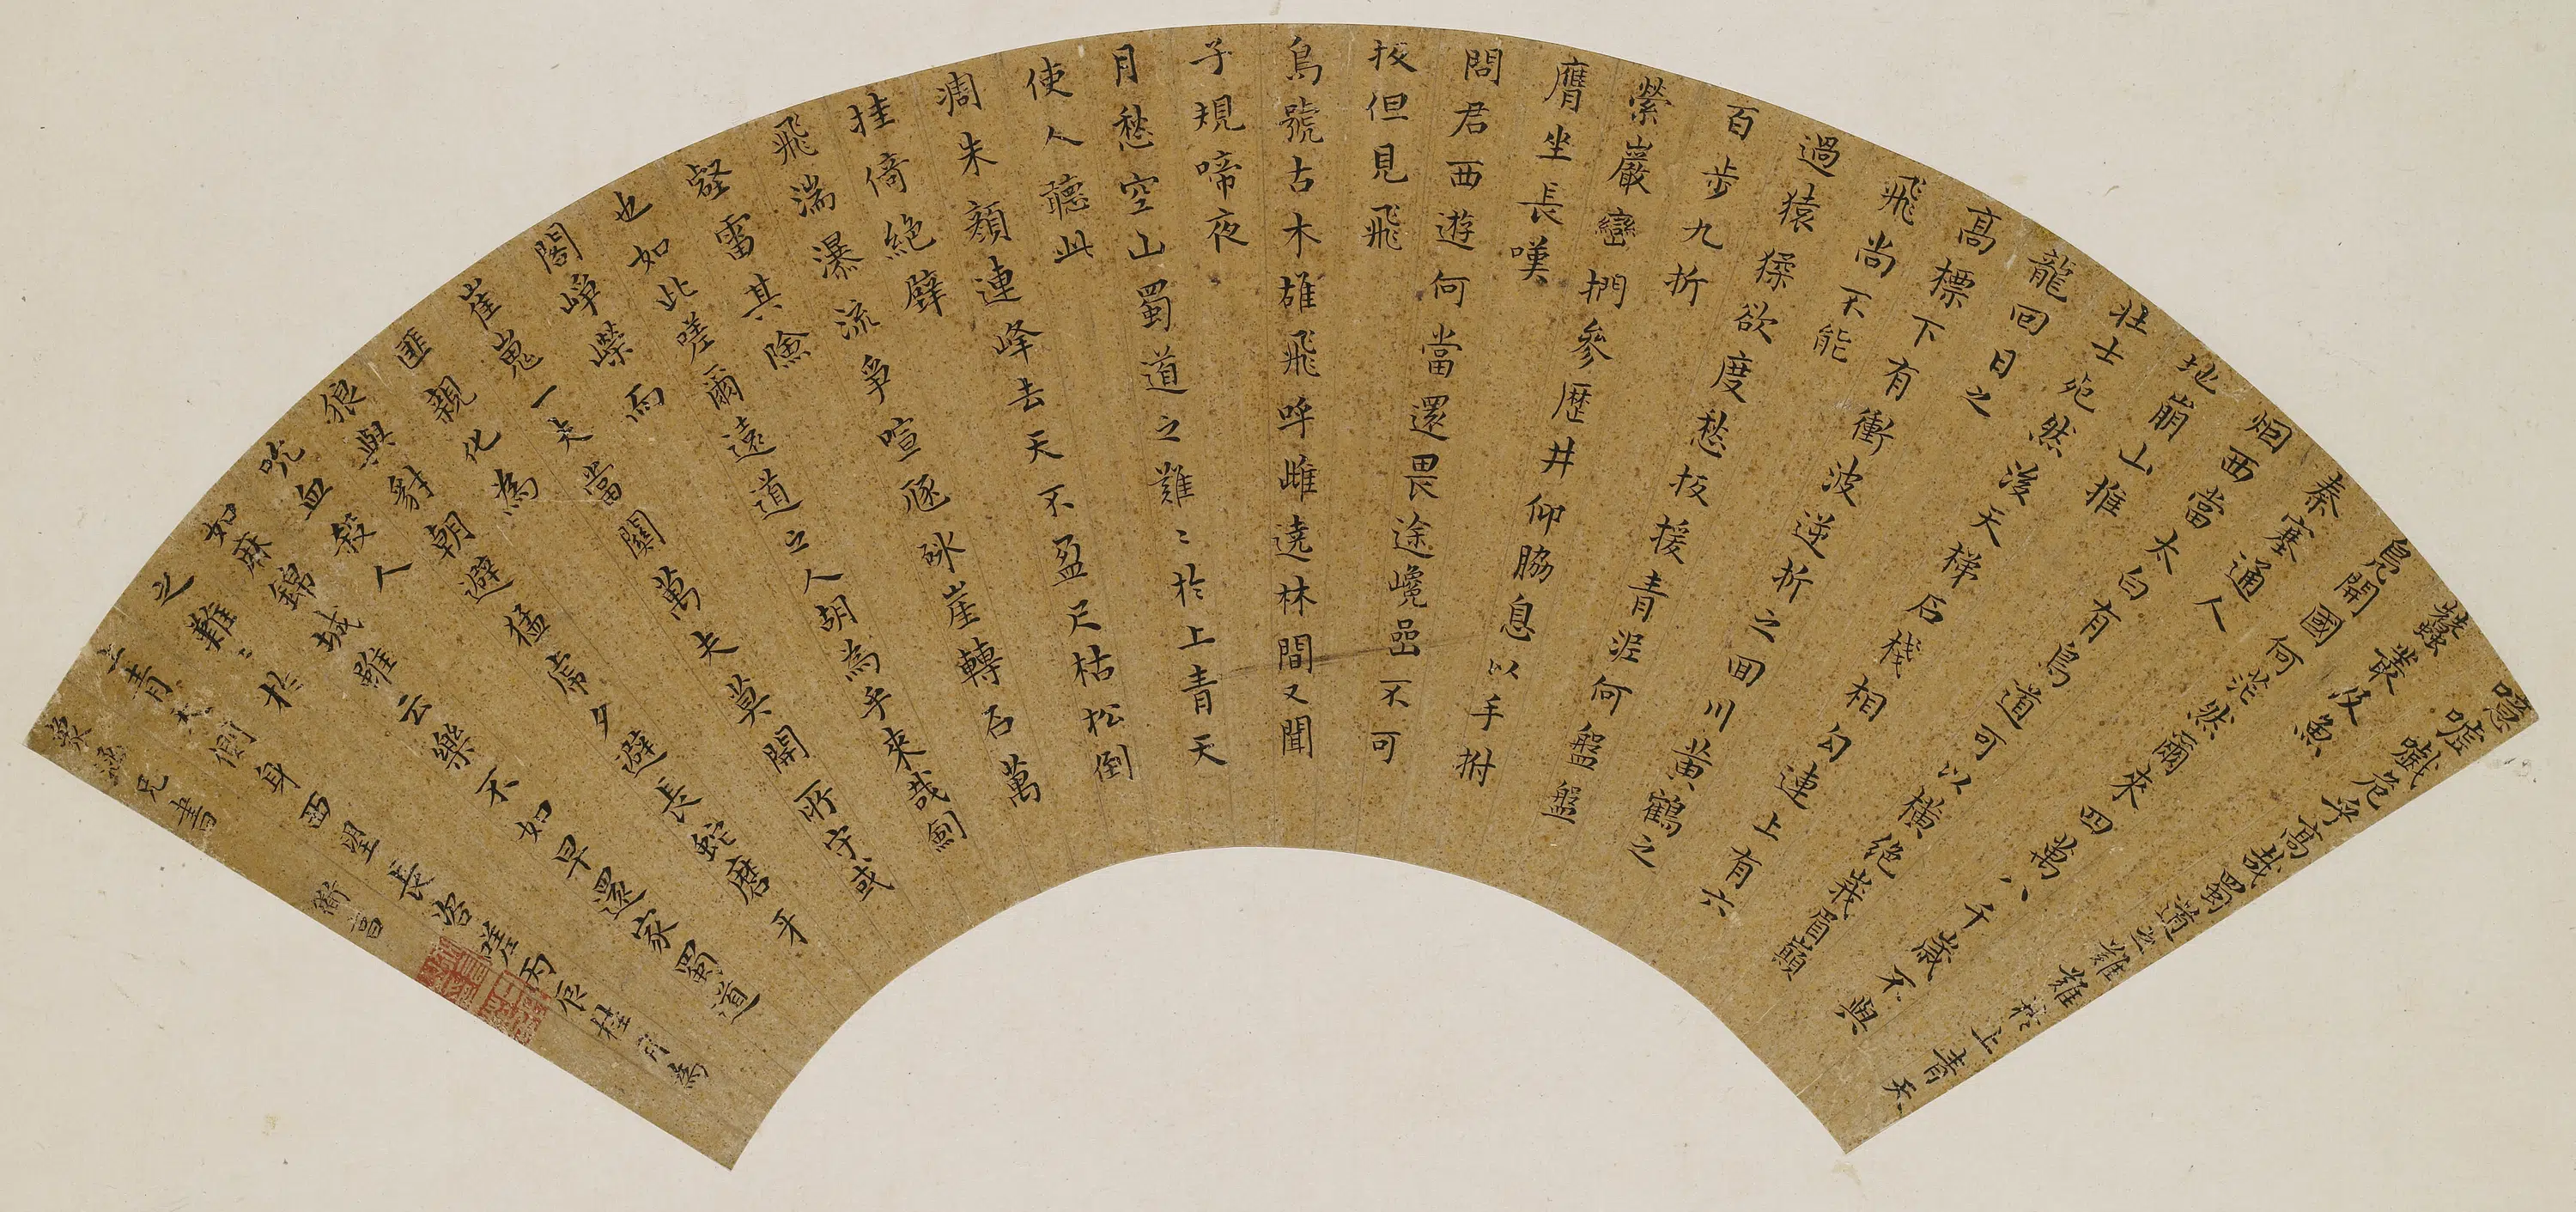 噫嘘嚱危乎高哉蜀道之難難於上青天
蠶叢及魚
鳧開國何茫然爾來四萬八千歲不與
秦塞通人
烟西當太白有鳥道可以橫絕峩眉巔
地崩山摧
壯士死然後天梯石棧相勾連上有六
龍回日之
高標下有衝波逆折之囬川黃鶴之
飛尚不能
過猿猱欲度愁扳援青泥何盤盤
百步九折
縈巖巒捫參歷井仰脇息以手拊
膺坐長嘆
問君西遊何當還畏途巉嵒不可
扳但見飛
鳥號古木雄飛呼雌遶林間又聞
子規啼夜
月愁空山蜀道之難〻於上青天
使人聽此
凋朱顏連峰去天不盈尺枯松倒
挂倚絕壁
飛湍瀑流爭喧豗砯崖轉石萬
壑雷其險
也如此嗟爾遠道之人胡為乎來哉劍
閣崢嶸而
崔嵬一夫當關萬夫莫開所守或
匪親化為
狼與豺朝避猛虎夕避長蛇磨牙
吮血殺人
如麻錦城雖云樂不如早還家蜀道
之難〻於
上青天側身西望長咨嗟丙辰桂月為
兄書